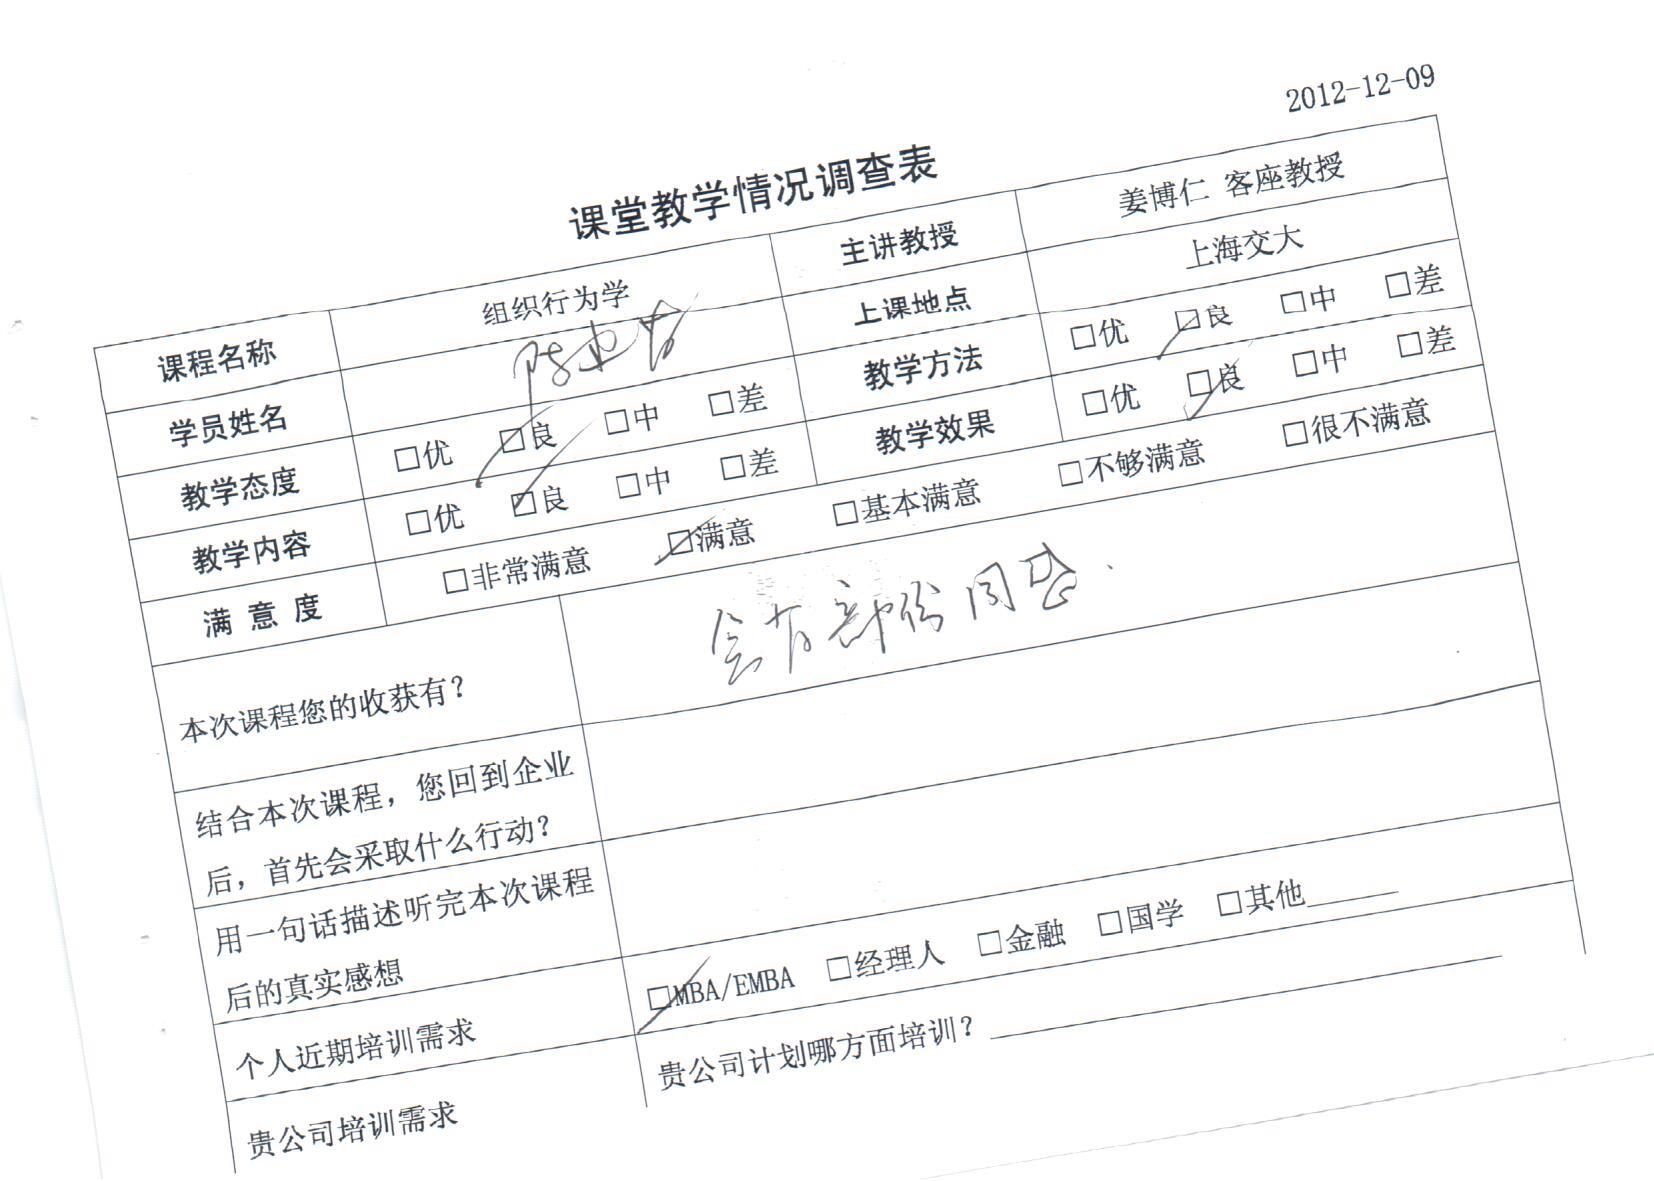 2012-12-09
课堂教学情况调查表
课程名称 组织行为学 主讲教授 姜博仁 客座教授
学员姓名 陈 上课地点 上海交大
教学态度 □优 □良 □中 □差 教学方法 □优 □良 □中 □差
教学内容 □优 □良 □中 □差 教学效果 □优 □良 □中 □差
满 意 度 □非常满意 □满意 □基本满意 □不够满意 □很不满意
本次课程您的收获有？ 会有部份同感.
结合本次课程，您回到企业
后，首先会采取什么行动？
用一句话描述听完本次课程
后的真实感想
个人近期培训需求 □MBA/EMBA □经理人 □金融 □国学 □其他______
贵公司培训需求 贵公司计划哪方面培训？